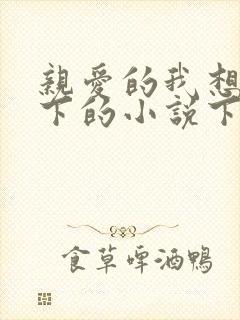 親愛的我想
下的小說下
食草啤酒鴨